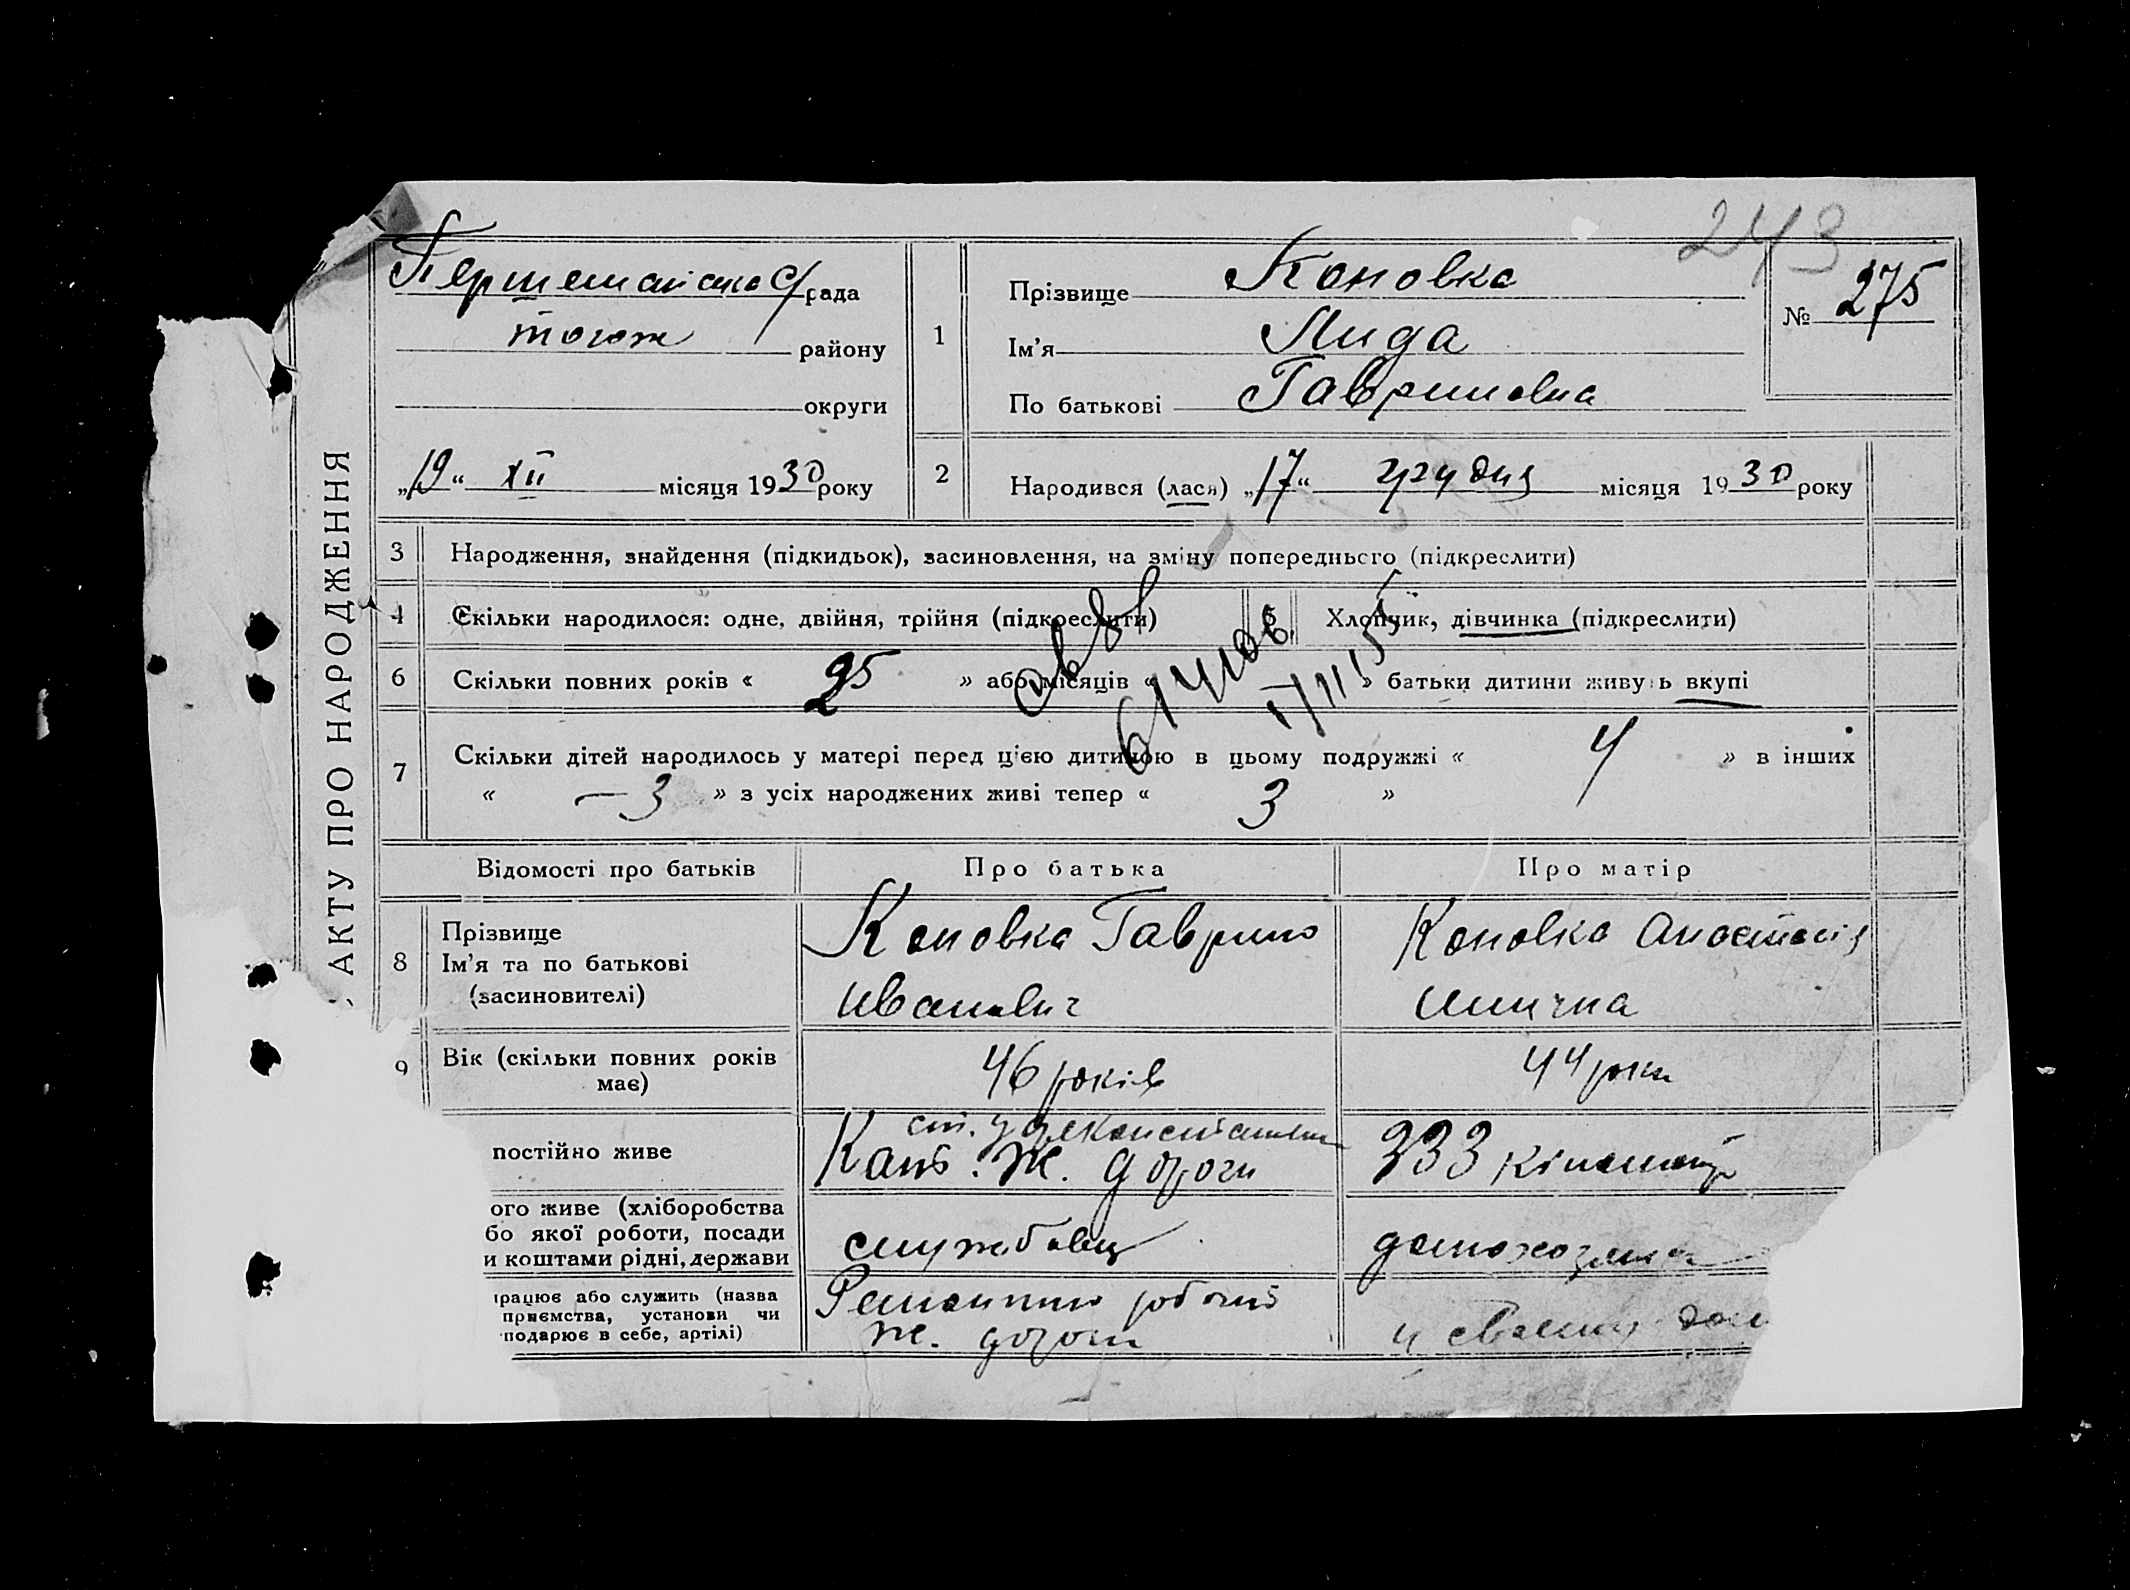 243
Першемайська с/рада
тогож району
округи
„19“ XII місяця 1930 року
АКТУ ПРО НАРОДЖЕННЯ
1
Прізвище Коновка
Ім’я Лида
По батькові Гавриловна
№ 275
2 Народився (лася) „17“ грудня місяця 1930 року
3 Народження, знайдення (підкидьок), засиновлення, на зміну попереднього (підкреслити)
4 Скільки народилося: одне, двійня, трійня (підкреслити) Хлопчик, дівчинка (підкреслити)
6 Скільки повних років « 25 » або місяців « » батьки дитини живуть вкупі
7 Скільки дітей народилось у матері перед цією дитиною в цьому подружжі « 4 » в інших
« — 3 » з усіх народжених живі тепер « 3 »
Відомості про батьків Про батька Про матір
8
Прізвище
Ім’я та по батькові
(засиновителі)
Коновка Гаврило
Иванович
Коновка Анастасія
Илична
9 Вік (скільки повних років
має)
46 років
44 роки
постійно живе
Кат. ж. дороги
333 кілометр
ого живе (хліборобства
бо якої роботи, посади
и коштами рідні, держави
службовец
домохозяйка
працює або служить (назва
приємства, установи чи
подарює в себе, артілі)
ж. дороги